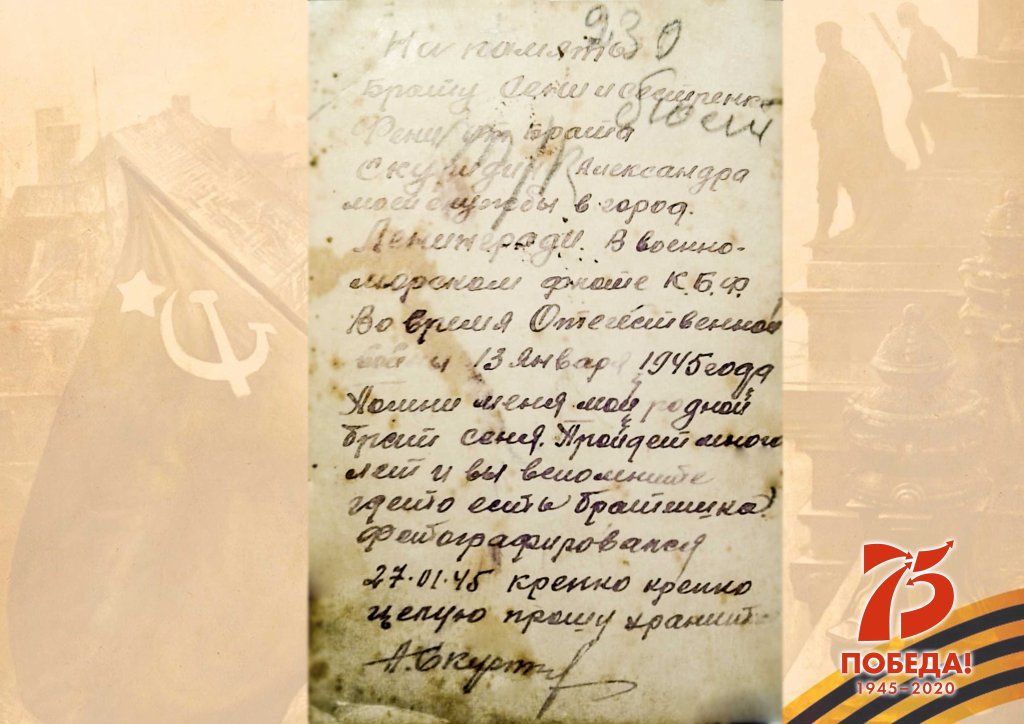 930
На память
брату Сени и сестренке
бюст
Фени от брата
Александра
моей службы в город.
Ленингради. В военно-
морском флоте К.Б.Ф.
Во время Отечественной
13 Января 1945 года
Помни меня мой родной
брат сеня. Пройдет много
лет и вы вспомните
гдето есть братишка.
Фотографировался
27.01.45 крепко крепко
целую прошу хранить
А. Скурт
75
ПОБЕДА!
1945–2020